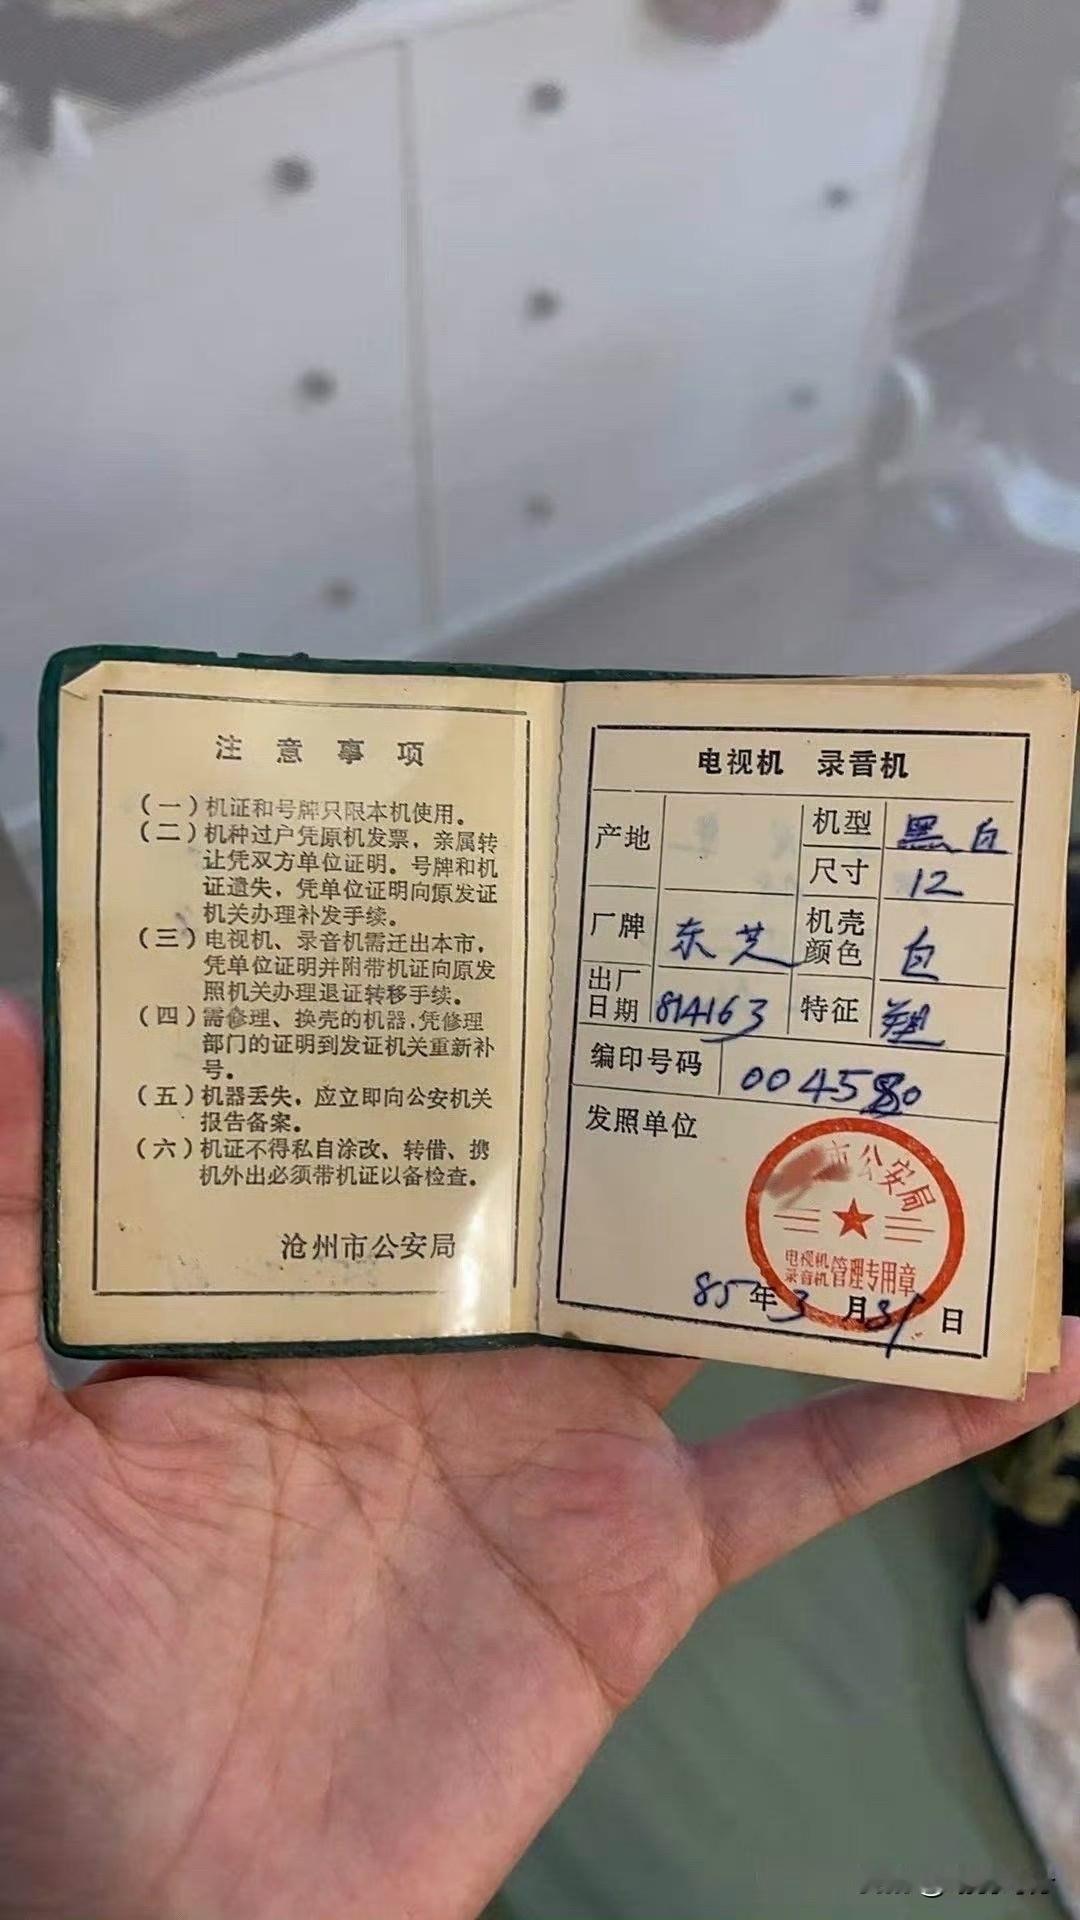 注意事项
（一）机证和号牌只限本机使用。
（二）机种过户凭原机发票，亲属转
让凭双方单位证明。号牌和机
证遗失，凭单位证明向原发证
机关办理补发手续。
（三）电视机、录音机需迁出本市，
凭单位证明并附带机证向原发
照机关办理退证转移手续。
（四）需修理、换壳的机器，凭修理
部门的证明到发证机关重新补
号。
（五）机器丢失，应立即向公安机关
报告备案。
（六）机证不得私自涂改、转借、携
机外出必须带机证以备检查。
沧州市公安局
电视机 录音机
产地
机型 黑白
尺寸 12
厂牌 东芝
机壳颜色 白
出厂日期 814163
特征 塑
编印号码 004580
发照单位
市公安局
电视机
录音机
管理专用章
85年3月31日